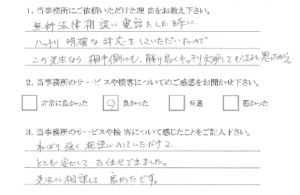 1. 当事務所にご依頼いただけた理由をお教え下さい。
無料法律相談に電話をした時に
ハッキリ明確な対応をしていただいたので
この先生なら、相手側にも、解り易くキッチリ対応してもらえると思ったから
2. 当事務所のサービスや接客についてのご感想をお聞かせ下さい。
非常に良かった 良かった 普通 悪かった
3. 当事務所のサービスや接客について感じたことをご記入下さい。
ねばり強く相談にのっていただけて
とても安心してお任せできました。
先生に相談して良かったです。